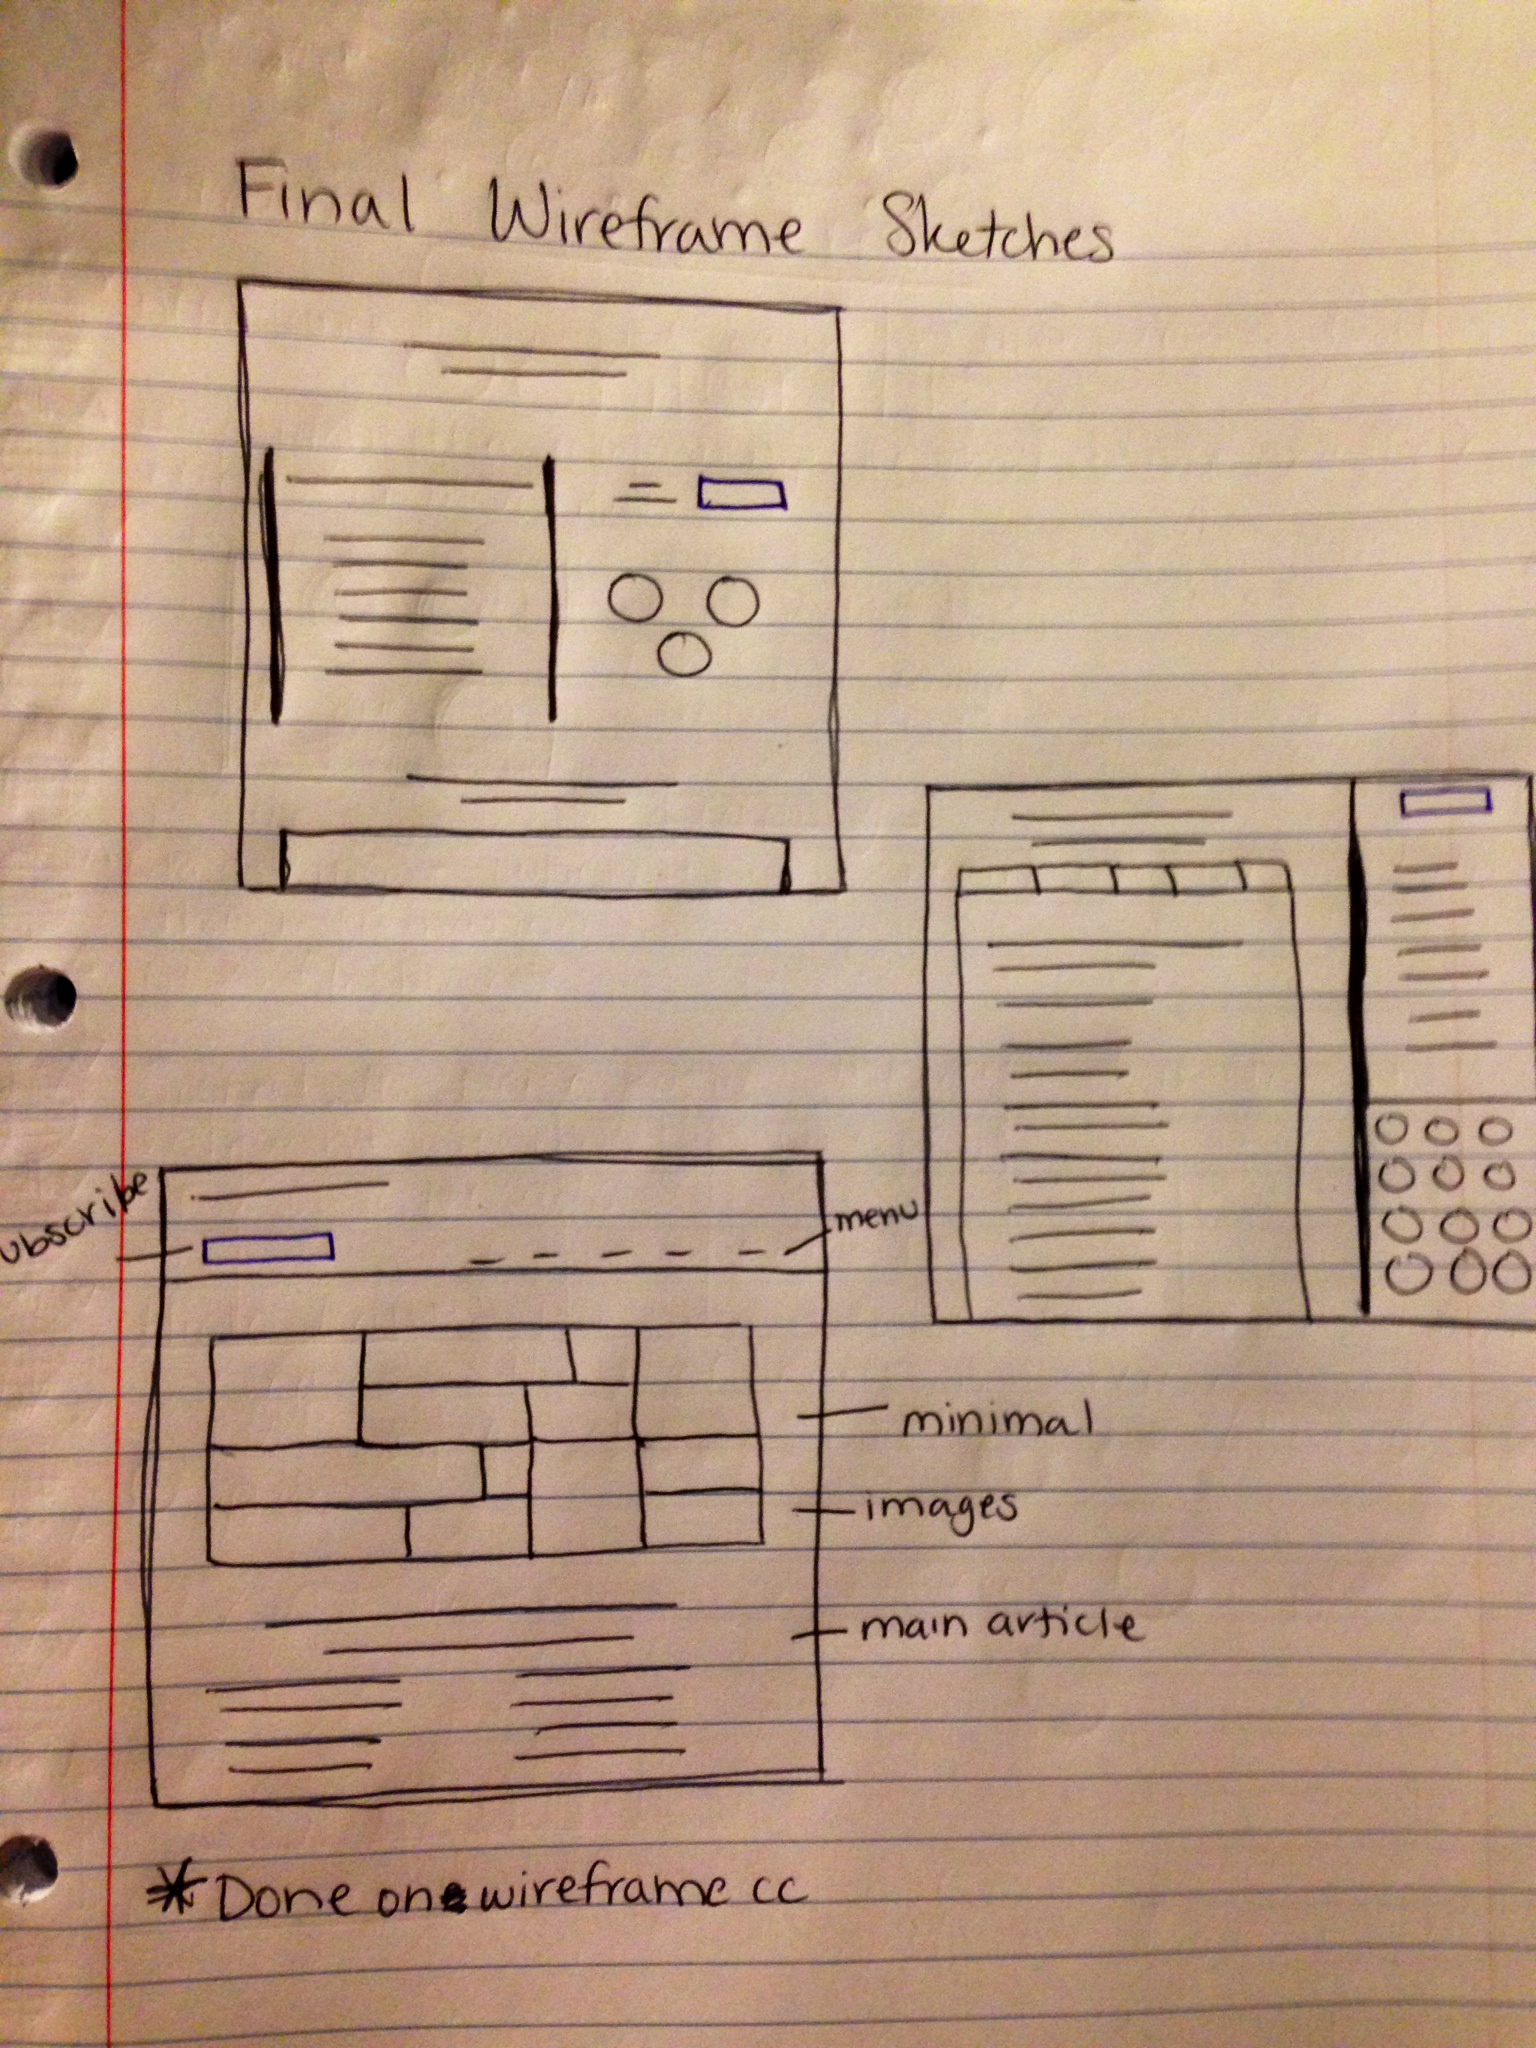 Final Wireframe Sketches
ubscribe
menu
minimal
images
main article
* Done on wireframe cc